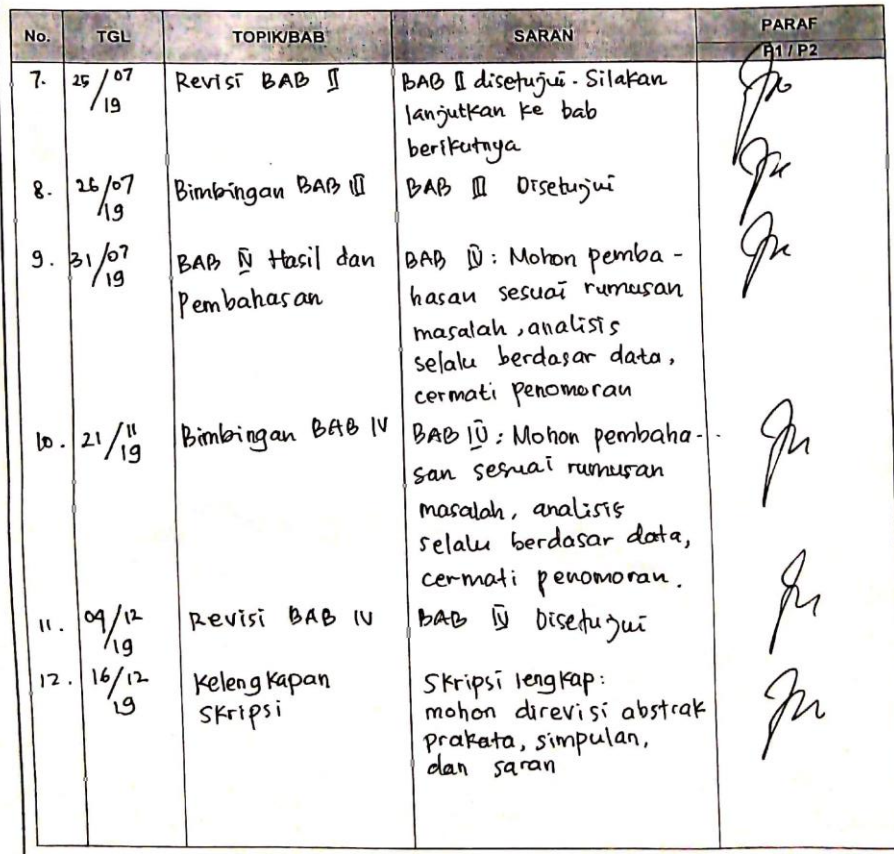 No. TGL TOPIK/BAB SARAN PARAF
P1 / P2
7. 25/07/19 Revisi BAB II BAB II disetujui. Silakan
lanjutkan ke bab
berikutnya
8. 26/07/19 Bimbingan BAB III BAB III Disetujui
9. 31/07/19 BAB IV Hasil dan BAB IV: Mohon pemba-
Pembahasan hasan sesuai rumusan
masalah, analisis
selalu berdasar data,
cermati penomoran
10. 21/11/19 Bimbingan BAB IV BAB IV: Mohon pembaha-
san sesuai rumusan
masalah, analisis
selalu berdasar data,
cermati penomoran.
11. 09/12/19 Revisi BAB IV BAB IV Disetujui
12. 16/12/19 Kelengkapan Skripsi lengkap:
Skripsi mohon direvisi abstrak
prakata, simpulan,
dan saran